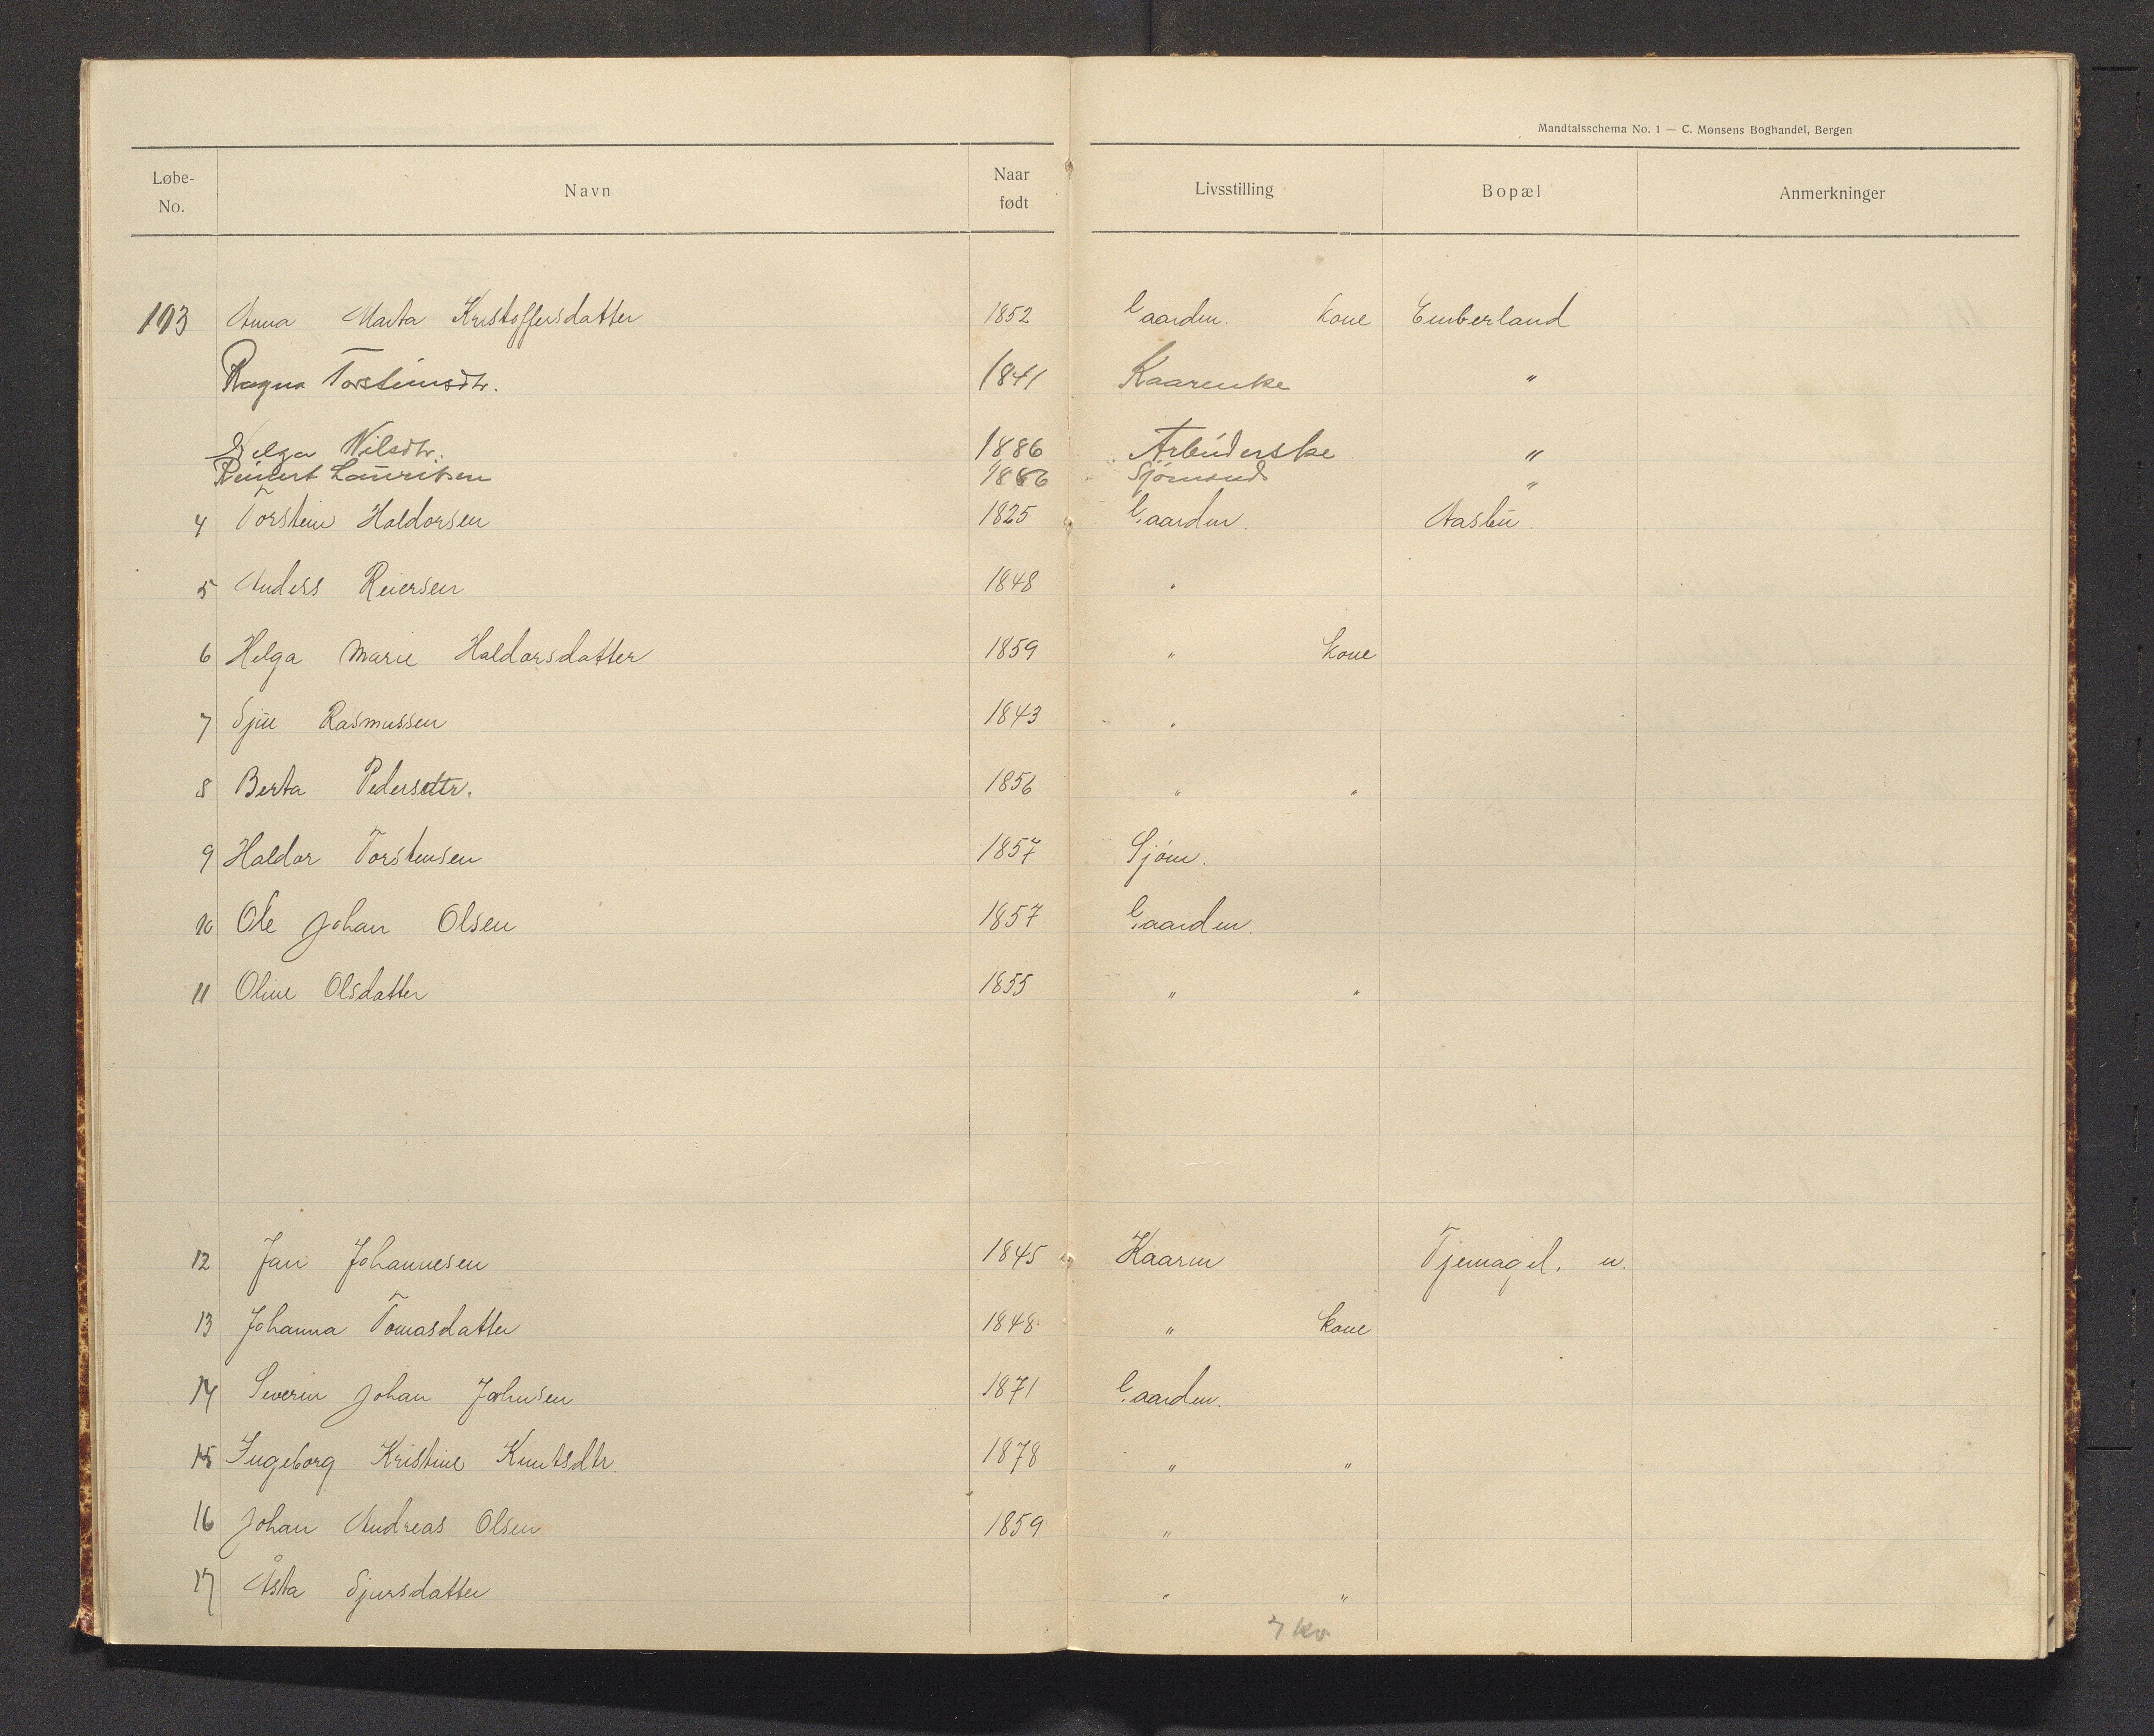 Mandtalsschema No. 1 — C. Monsens Boghandel, Bergen
Løbe-No. Navn Naar født Livsstilling Bopæl Anmerkninger
193 Anna Marta Kristoffersdatter 1852 Gaardm. kone Emberland
Ragna Torsteinsdtr. 1841 Kaarenke "
Helga Nilsdtr. 1886 Arbeiderske "
Reinert Lauritsen 1886 Sjømand "
4 Torstein Haldorsen 1825 Gaardm. Aasbu
5 Anders Reiersen 1848 "
6 Helga Marie Haldorsdatter 1859 " kone
7 Sjur Rasmussen 1843 "
8 Berta Pedersdtr. 1856 " "
9 Haldor Torstensen 1857 Sjøm.
10 Ole Johan Olsen 1857 Gaardm.
11 Oline Olsdatter 1855 " "
12 Jan Johannesen 1845 Kaarm Tjernagel. n.
13 Johanna Tomasdatter 1848 " kone
14 Severin Johan Jahnsen 1871 Gaardm.
15 Ingeborg Kristine Knutsdtr. 1878 " "
16 Johan Andreas Olsen 1859 "
17 Åsta Sjursdatter " "
7 kv